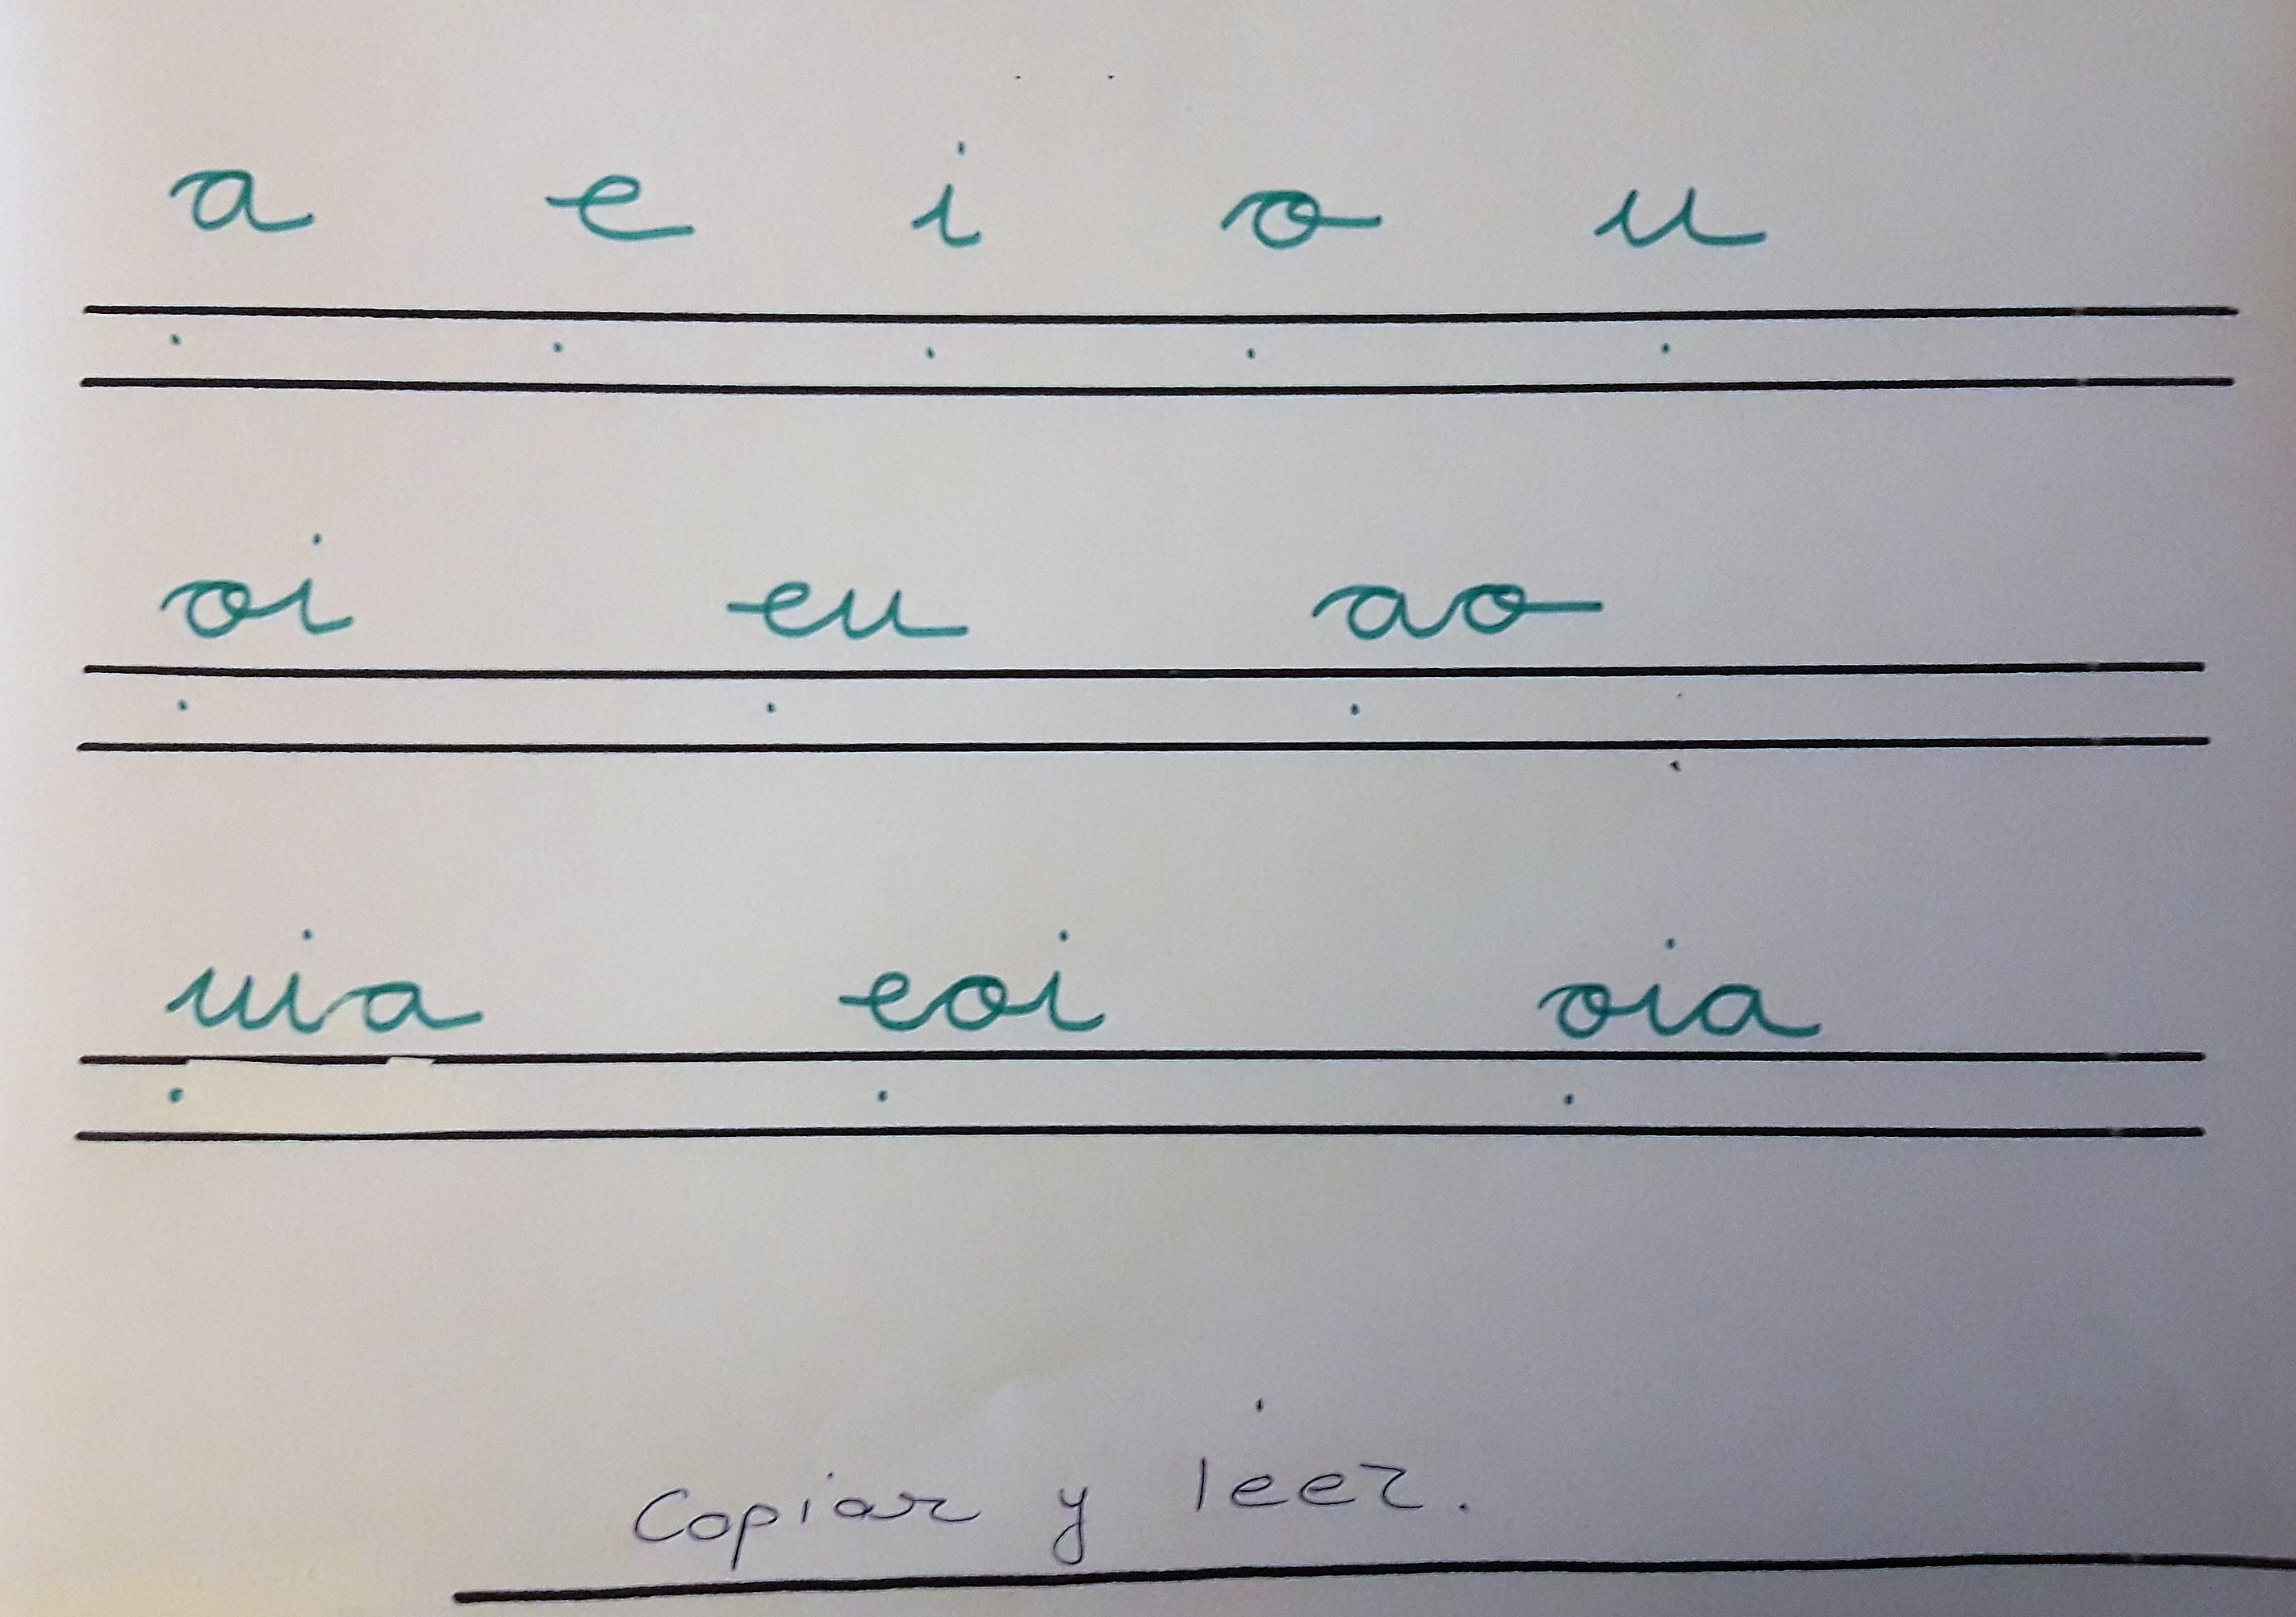 a e i o u
oi eu ao
uia eoi oia
Copiar y leer.